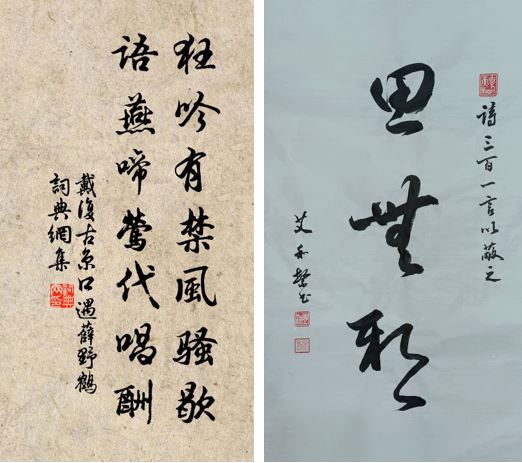 狂吟有禁風騷歇
语燕啼鶯代唱酬
戴復古京口遇薛野鶴
詞典網集
詩三百一言以蔽之
思無邪